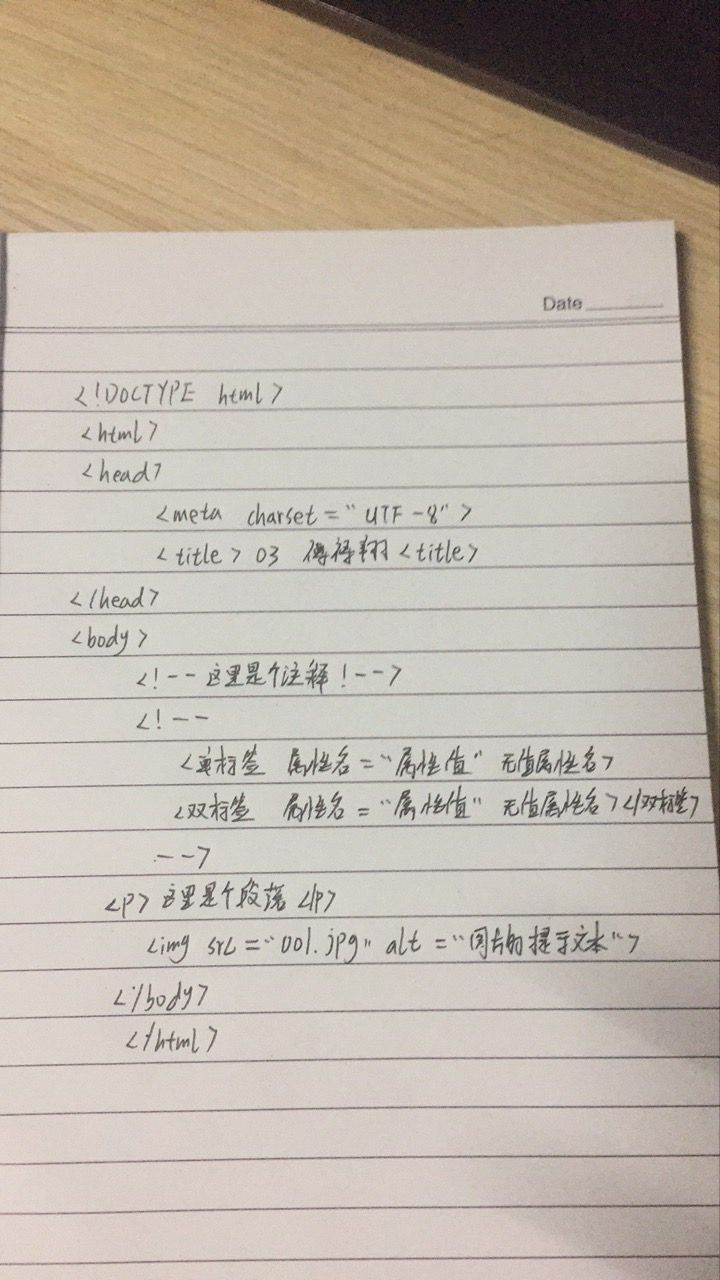 Date
<!DOCTYPE html>
<html>
<head>
<meta charset="UTF-8">
<title>03 翔<title>
</head>
<body>
<!--这里是个注释!-->
<!--
<单标签 属性名="属性值" 无值属性名>
<双标签 属性名="属性值" 无值属性名></双标签>
-->
<p>这里是个段落</p>
<img src="001.jpg" alt="图片的提示文本">
</body>
</html>